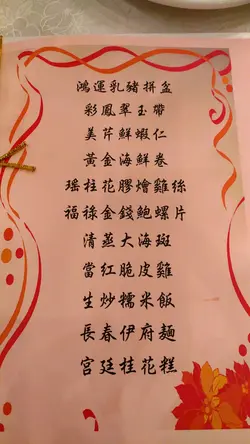 鴻運乳豬拼盆
彩鳳翠玉帶
美芹鮮蝦仁
黃金海鮮卷
瑶柱花膠燴雞絲
福祿金錢鮑螺片
清蒸大海斑
當紅脆皮雞
生炒糯米飯
長春伊府麵
宮廷桂花糕